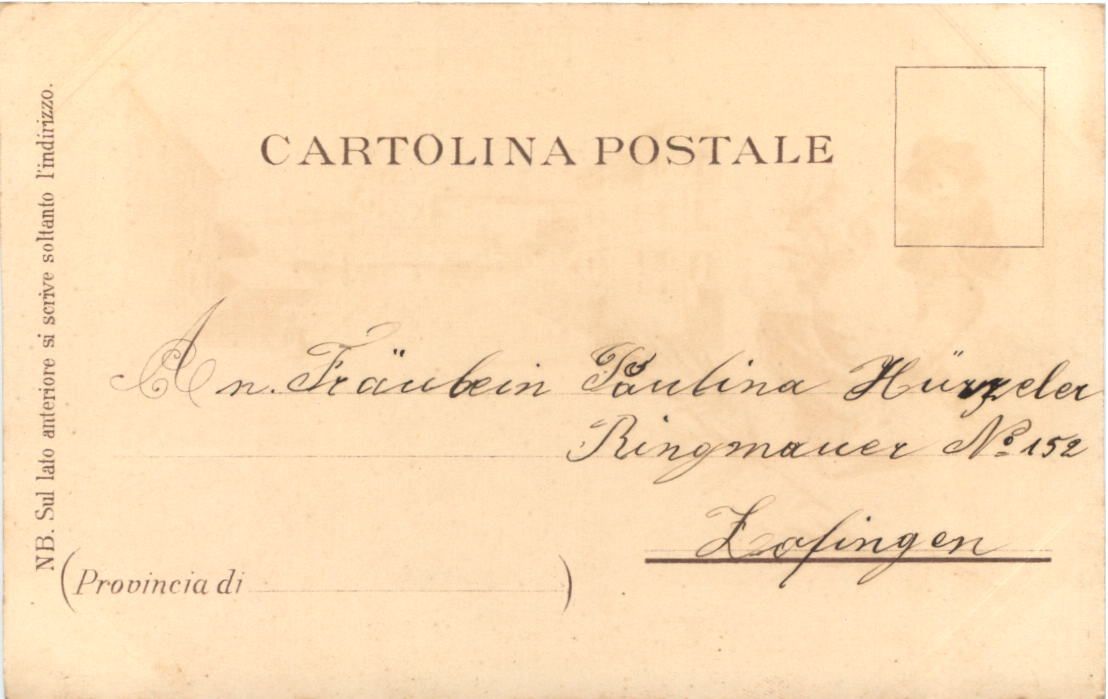 CARTOLINA POSTALE
NB. Sul lato anteriore si scrive soltanto l'indirizzo.
An. Fräulein Paulina Hürzeler
Ringmauer No. 152
Zofingen
(Provincia di )